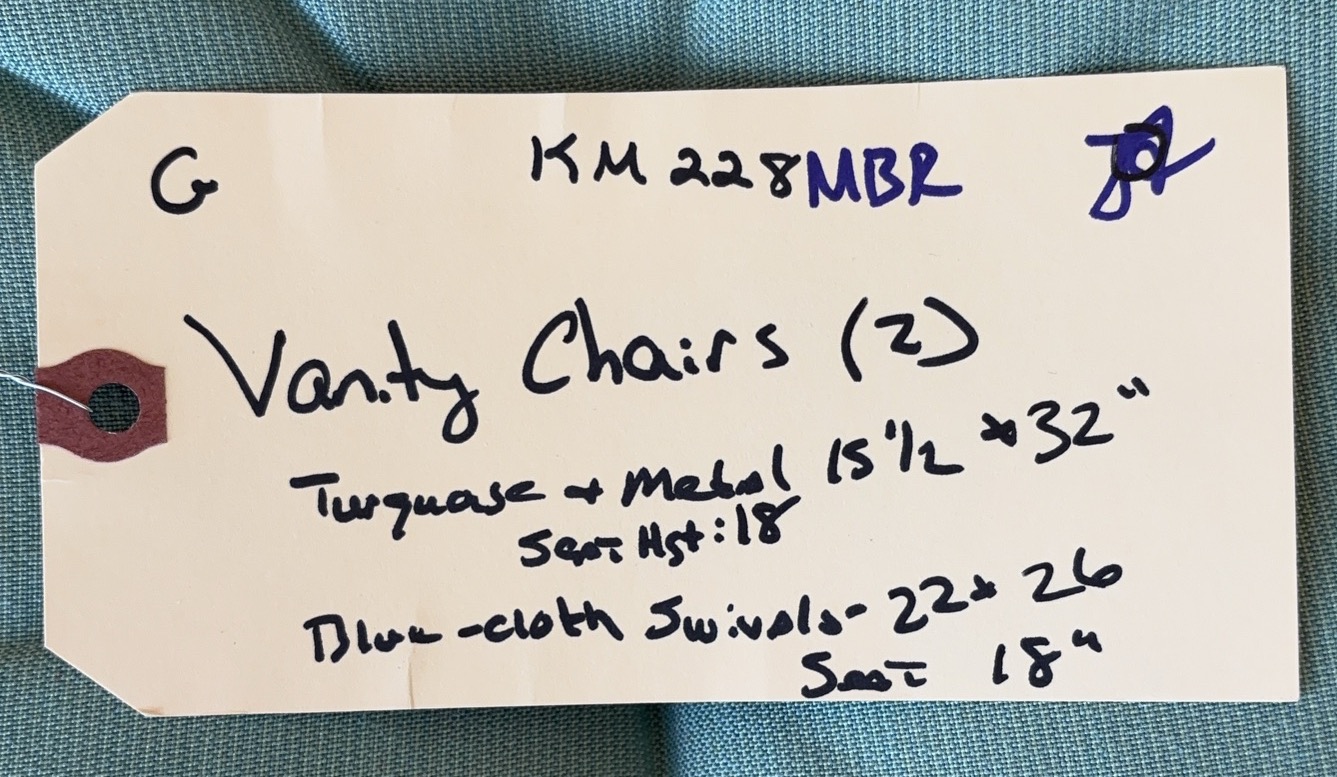 G KM 228 MBR
Vanity Chairs (2)
Turquose + Metal 15 1/2 * 32"
Seat Hgt: 18
Blue-cloth Swivels - 22 * 26
Seat 18"